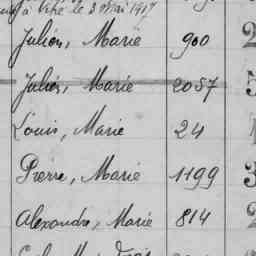 à Vitré le 3 Mai 1917
Julien, Marie 900 2
Julien, Marie 2057 5
Louis, Marie 24 1
Pierre, Marie 1199 3
Alexandre, Marie 814 2